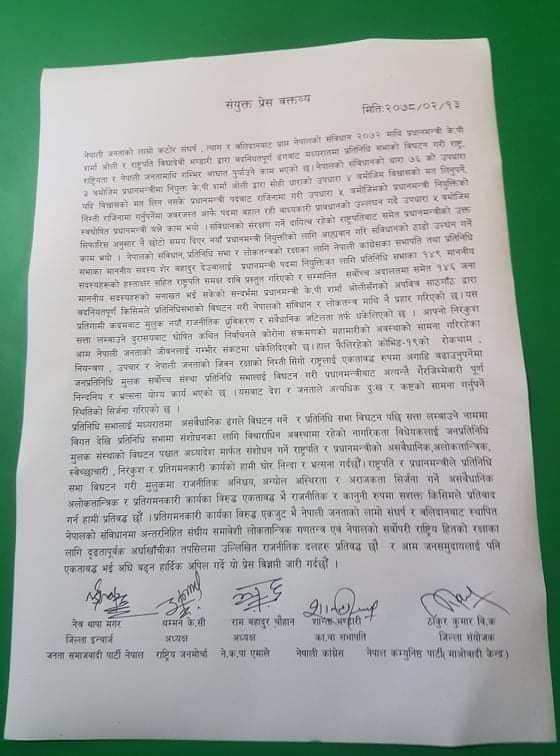 संयुक्त प्रेस वक्तव्य
मिति:२०७८/०२/१३
नेपाली जनताको लामो कठोर संघर्ष , त्याग र बलिदानबाट प्राप्त नेपालको संविधान २०७२ माथि प्रधानमन्त्री के.पी
शर्मा ओली र राष्ट्रपति बिद्यादेवी भण्डारी द्वारा बदनियतपूर्ण ढंगबाट मध्यरातमा प्रतिनिधि सभाको विघटन गरी राष्ट्र,
राष्ट्रियता र नेपाली जनतामाथि गम्भिर आघात पुर्याउने काम भएको छ ।नेपालको संविधानको धारा ७६ को उपधारा
३ बमोजिम प्रधानमन्त्रीमा नियुक्त के.पी शर्मा ओली द्वारा सोही धाराको उपधारा ४ बमोजिम विश्वासको मत लिनुपर्ने,
यदि विश्वासको मत लिन नसके प्रधानमन्त्री पदबाट राजिनामा गरी उपधारा ५ बमोजिमको प्रधानमन्त्री नियुक्तिको
निम्ती राजिनामा गर्नुपर्नेमा जवरजस्त आफै पदमा बहाल रही बाध्यकारी प्राबधानको उल्लघन गर्दै उपधारा ५ बमोजिम
स्वघोषित प्रधानमन्त्री बन्ने काम भयो ।संविधानको संरक्षण गर्ने दायित्व रहेको राष्ट्रपतिबाट समेत प्रधानमन्त्रीको उक्त
सिफारिस अनुसार नै छोटो समय दिएर नयाँ प्रधानमन्त्री नियुक्तीको लागि आव्हान गरि संविधानको ठाडो उल्घन गर्ने
काम भयो । नेपालको संविधान, प्रतिनिधि सभा र लोकतन्त्रको रक्षाका लागि नेपाली कांग्रेसका सभापति तथा प्रतिनिधि
सभाका माननीय सदस्य शेर बहादुर देउवालाई प्रधानमन्त्री पदमा नियुक्तिका लागि प्रतिनिधि सभाका १४९ माननीय
सदस्यहरुको हस्ताक्षर सहित राष्ट्रपति समक्ष दावि प्रस्तुत गरिएको र सम्मानित सर्वोच्च अदालतमा समेत १४६ जना
माननीय सदस्यहरुको सनाखत भई सकेको सन्दर्भमा प्रधानमन्त्री के.पी शर्मा ओलीसँगको अपबित्र साठगाँठ द्वारा
बदनियतपूर्ण किसिमले प्रतिनिधिसभाको विघटन गरी नेपालको संविधान र लोकतन्त्र माथि नै प्रहार गरिएको छ ।यस
प्रतिगामी कदमबाट मुलुक नयाँ राजनीतिक ध्रुबिकरण र संवैधानिक जटिलता तर्फ धकेलिएको छ । आफ्नो निरकुश
सत्ता लम्बाउने दुरासयबाट घोषित कथित निर्वाचनले कोरोना संक्रमणको महामारीको अवस्थाको सामना गरिरहेका
आम नेपाली जनताको जीवनलाई गम्भीर संकटमा धकेलिदिएको छ।हाल फैलिरहेको कोभिड-१९को रोकथाम ,
नियन्त्रण , उपचार र नेपाली जनताको जिबन रक्षाको निम्ती सिंगो राष्ट्रलाई एकताबद्ध रुपमा अगाडि बढाउनुपर्नेमा
जनप्रतिनिधि मुलक सर्वोच्च संस्था प्रतिनिधि सभालाई बिघटन गरी प्रधानमन्त्रीबाट अत्यन्तै गैरजिम्मेबारी पूर्ण
निन्दनिय र भत्सना योग्य कार्य भएको छ ।यसबाट देश र जनताले अत्यधिक दु:ख र कष्टको सामना गर्नुपर्ने
स्थितिको सिर्जना गरिएको छ ।
प्रतिनिधि सभालाई मध्यरातमा असवैधानिक ढंगले विघटन गर्ने र प्रतिनिधि सभा विघटन पछि सत्ता लम्बाउने नाममा
बिगत देखि प्रतिनिधि सभामा संशोधनका लागि विचाराधिन अवस्थामा रहेको नागरिकता विधेयकलाई जनप्रतिनिधि
मुलक संस्थाको विघटन पश्चात अध्यादेश मार्फत संशोधन गर्ने राष्ट्रपति र प्रधानमन्त्रीको असवैधानिक,अलोकतान्त्रिक,
स्वेच्छाचारी , निरकुश र प्रतिगमनकारी कार्यको हामी घोर निन्दा र भत्सना गर्दछौं।राष्ट्रपति र प्रधानमन्त्रीले प्रतिनिधि
सभा विघटन गरी मुलुकमा राजनीतिक अनिश्चय, अग्घोल अस्थिरता र अराजकता सिर्जना गर्ने असवैधानिक
अलोकतान्त्रिक र प्रतिगमनकारी कार्यका बिरुद्द एकताबद्ध भै राजनीतिक र कानुनी रुपमा सशक्त किसिमले प्रतिवाद
गर्न हामी प्रतिबद्ध छौं ।प्रतिगमनकारी कार्यका बिरुद्द एकजुट भै नेपाली जनताको लामो संघर्ष र बलिदानबाट स्थापित
नेपालको संविधानमा अन्तरनिहित संघीय समावेशी लोकतान्त्रिक गणतन्त्र एवं नेपालको सर्वोपरी राष्ट्रिय हितको रक्षाका
लागि दृढतापूर्वक अघिबढीका तपसिलमा उल्लिखित राजनितिक दलहरु प्रतिबद्ध छौं र आम जनसमुदायलाई पनि
एकताबद्ध भई अघि बढ्न हार्दिक अपिल गर्दै यो प्रेस बिज्ञप्ती जारी गर्दछौं ।
नेत्र थापा मगर धम्मन के.सी राम बहादुर चौहान शान्ता भण्डारी ठाकुर कुमार बि.क
जिल्ला इन्चार्ज अध्यक्ष अध्यक्ष का.वा सभापति जिल्ला संयोजक
जनता समाजवादी पार्टी नेपाल राष्ट्रिय जनमोर्चा ने.क.पा एमाले नेपाली कांग्रेस नेपाल कम्युनिष्ठ पार्टी( माओवादी केन्द्र )